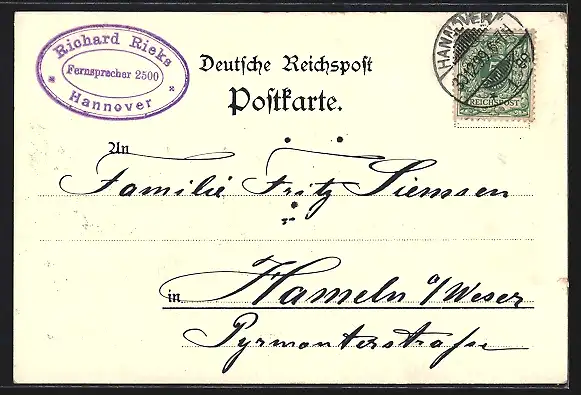 Richard Rieks
Fernsprecher 2500
Hannover
Deutsche Reichspost
Postkarte.
HANNOVER
REICHSPOST
An
Familie Fritz Siemssen
in Hameln a/Weser
Pyrmonterstraße